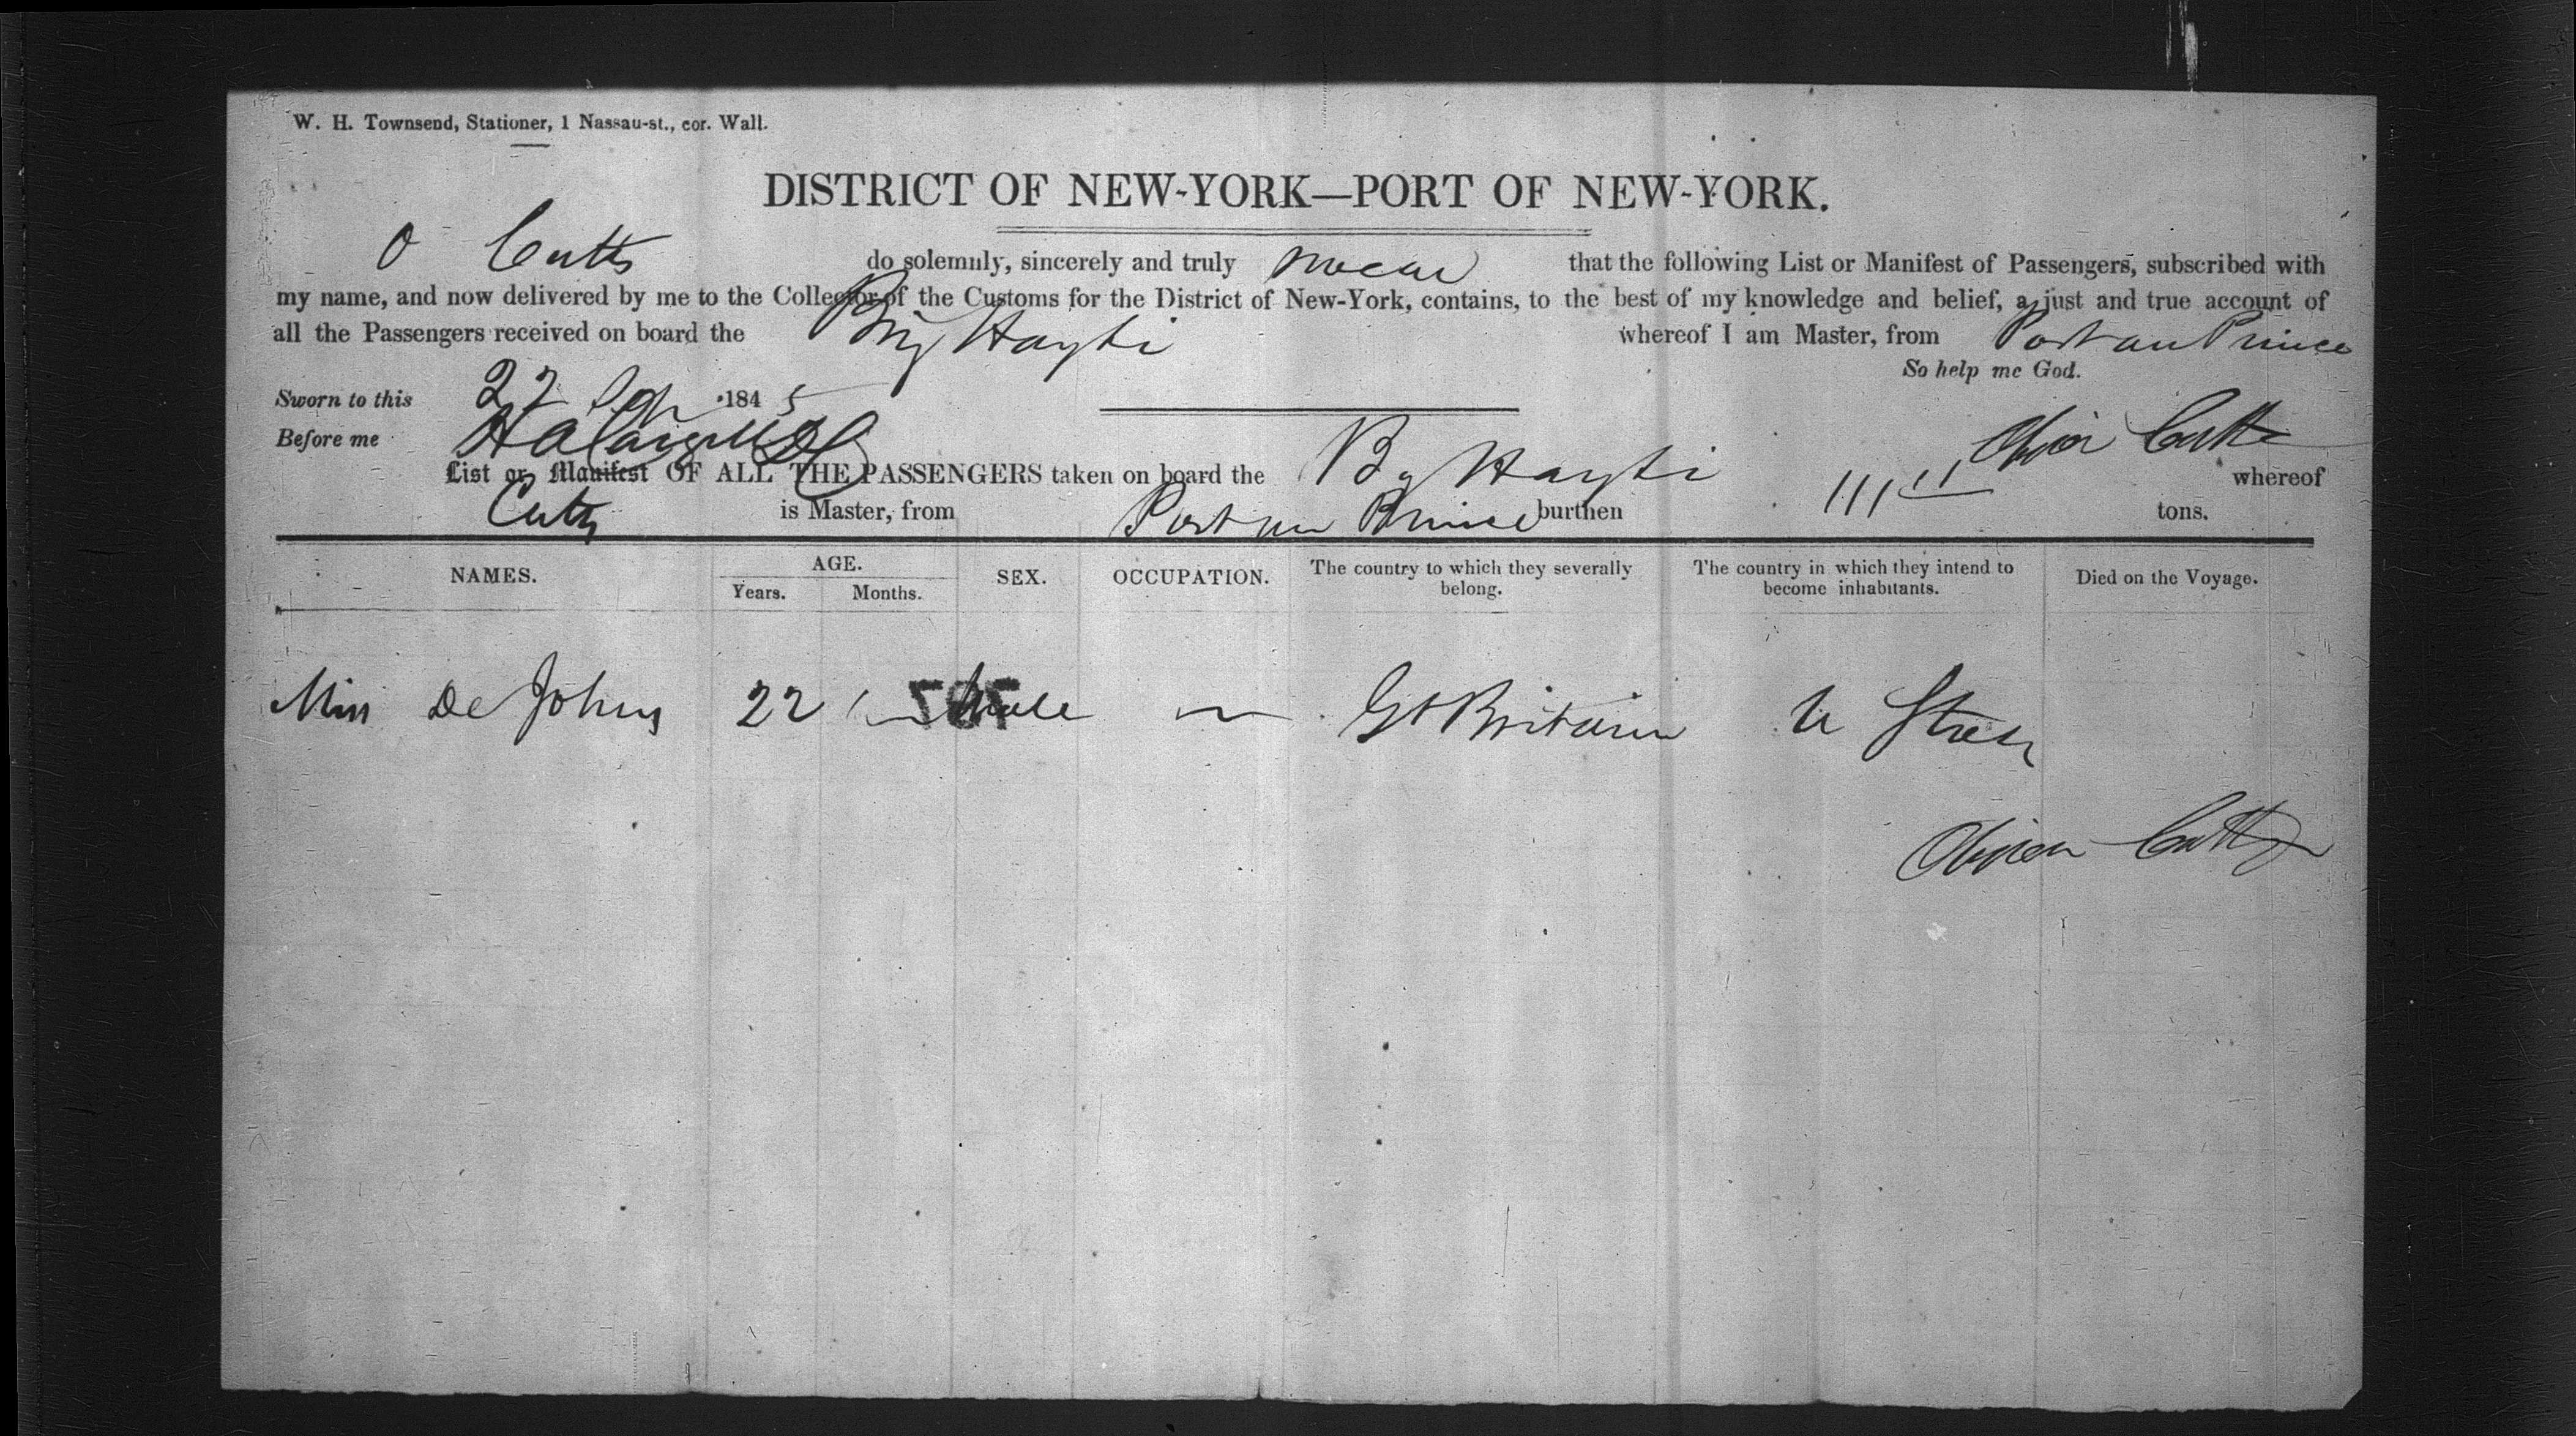 W. H. Townsend, Stationer, 1 Nassau-st., cor. Wall.
DISTRICT OF NEW-YORK—PORT OF NEW-YORK.
O Cutts do solemnly, sincerely and truly swear that the following List or Manifest of Passengers, subscribed with
my name, and now delivered by me to the Collector of the Customs for the District of New-York, contains, to the best of my knowledge and belief, a just and true account of
all the Passengers received on board the Brig Hayti whereof I am Master, from Port au Prince
So help me God.
Sworn to this 22 1845
Before me Cutts
List or Manifest OF ALL THE PASSENGERS taken on board the Bg Hayti whereof
Cutts is Master, from Port au Prince burthen tons.
NAMES. AGE. SEX. OCCUPATION. The country to which they severally belong. The country in which they intend to become inhabitants. Died on the Voyage.
Years. Months.
Miss De Johns 22 505 Gt Britain U States
Cutts